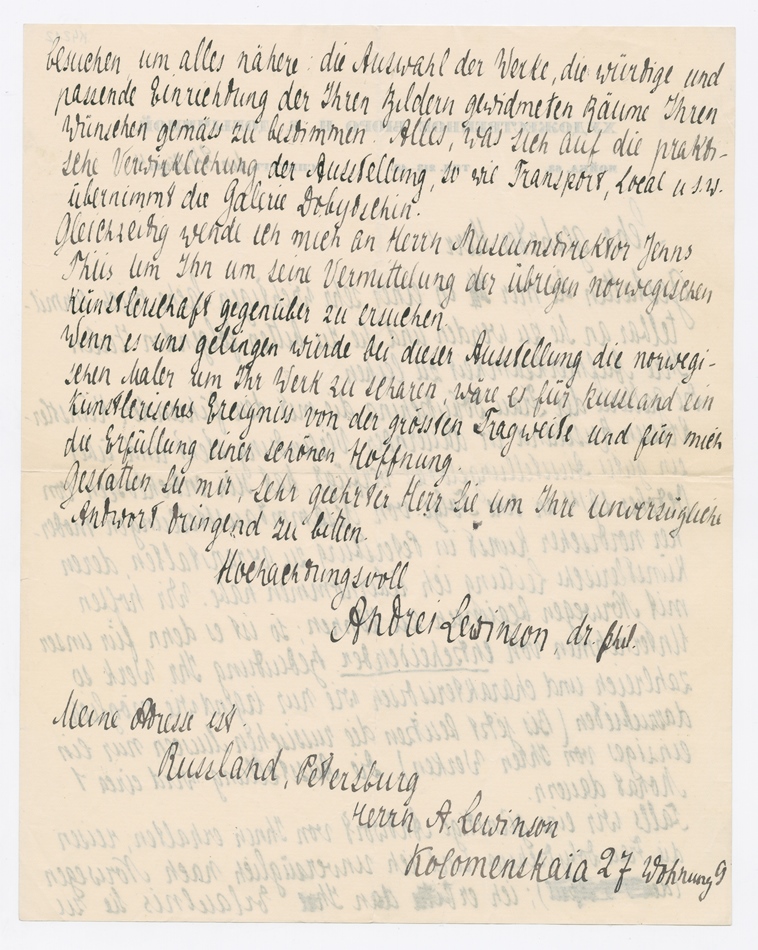 besuchen um alles nähere: die Auswahl der Werke, die würdige und
passende Einrichtung der Ihren Bildern gewidmeten Räume Ihren
Wünschen gemäss zu bestimmen. Alles, was sich auf die prakti-
sche Verwirklichung der Ausstellung, so wie Transport, Local u.s.w.
übernimmt die Galerie Dobytschin.
Gleichzeitig wende ich mich an Herrn Museumsdirektor Jenns
Thiis um Ihn um seine Vermittelung der übrigen norwegischen
Künstlerschaft gegenüber zu ersuchen.
Wenn es uns gelingen würde bei dieser Ausstellung die norwegi-
schen Maler um Ihr Werk zu scharen, wäre es für Russland ein
künstlerisches Ereigniss von der grössten Tragweite und für mich
die Erfüllung einer schönen Hoffnung.
Gestatten Sie mir, sehr geehrter Herr Sie um Ihre unverzügliche
Antwort dringend zu bitten.
Hochachtungsvoll
Andrei Lewinson, dr. phil.
Meine Adresse ist.
Russland, Petersburg
Herrn A. Lewinson
Kolomenskaia 27 Wohnung 9